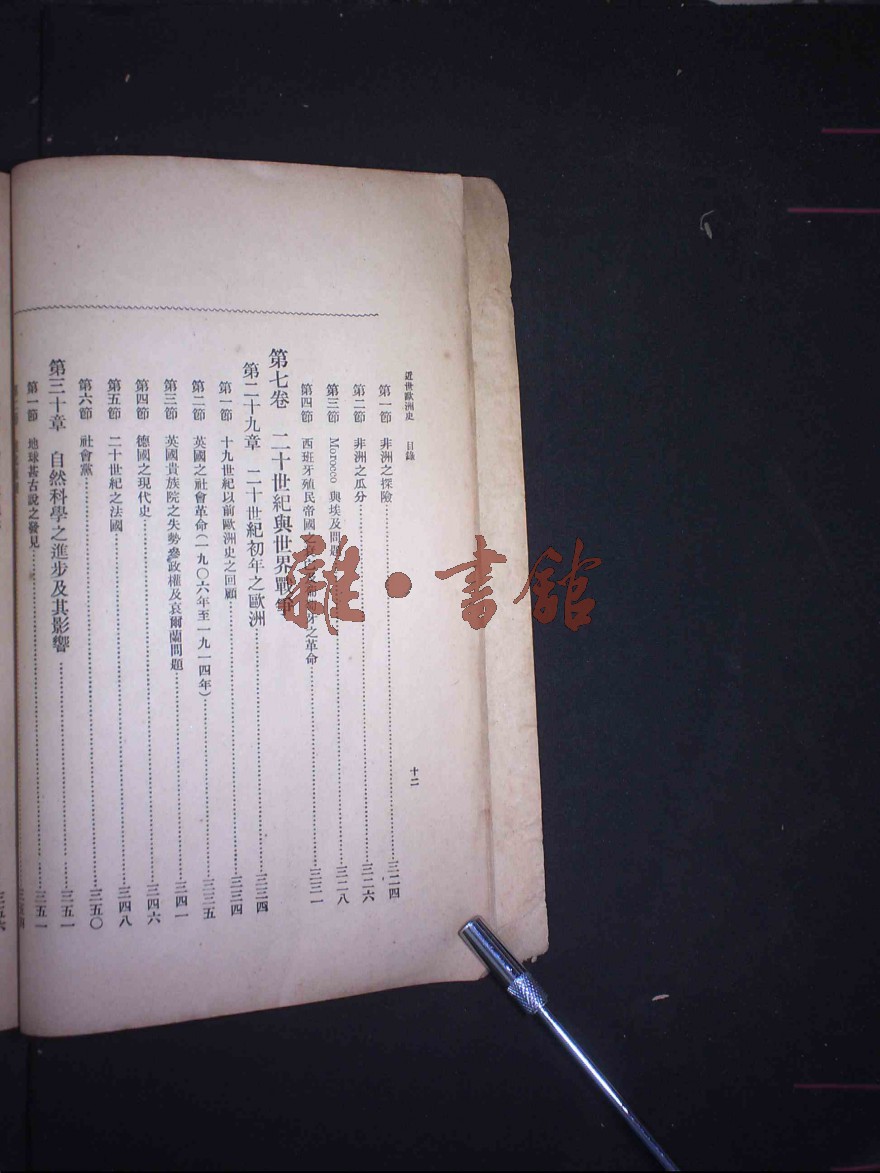 近世歐洲史 目錄 十二
第一節 非洲之探險 三二四
第二節 非洲之瓜分 三二六
第三節 Morocco 與埃及問題 三二八
第四節 西班牙殖民帝國 牙之革命 三三一
第七卷 二十世紀與世界戰爭
第二十九章 二十世紀初年之歐洲 三三四
第一節 十九世紀以前歐洲史之回顧 三三四
第二節 英國之社會革命(一九〇六年至一九一四年) 三三五
第三節 英國貴族院之失勢參政權及哀爾蘭問題 三四一
第四節 德國之現代史 三四六
第五節 二十世紀之法國 三四八
第六節 社會黨 三五〇
第三十章 自然科學之進步及其影響 三五一
第一節 地球甚古說之發見 三五一
雜·書館